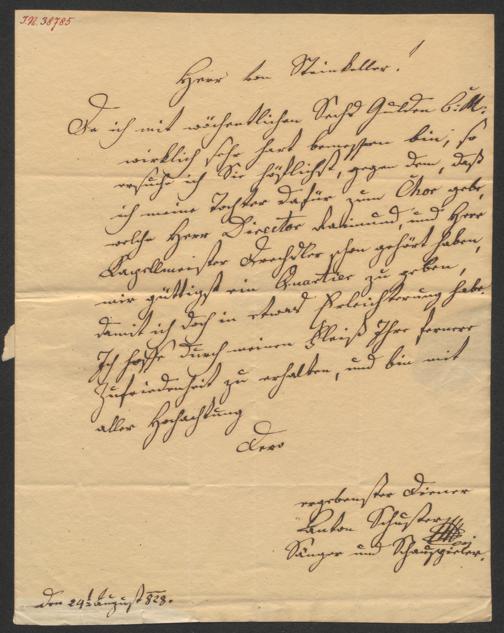 I.N. 38785
Herr von Steinkeller!
Da ich mit wöchentlichen Sechs Gulden C.M.
wirklich sehr hart bemessen bin, so
ersuche ich Sie höflichst, gegen dem, daß
ich meine Tochter dafür zum Chor gebe,
welche Herr Director Raimund, und Herr
Kapellmeister Drechsler schon gehört haben,
mir gütigst ein Quartier zu geben,
damit ich doch in etwas Erleichterung habe.
Ich hoffe durch meinen Fleiß Ihre fernere
Zufriedenheit zu erhalten, und bin mit
aller Hochachtung
Dero
ergebenster Diener
Anton Schuster
Sänger und Schauspieler.
den 24t August 828.